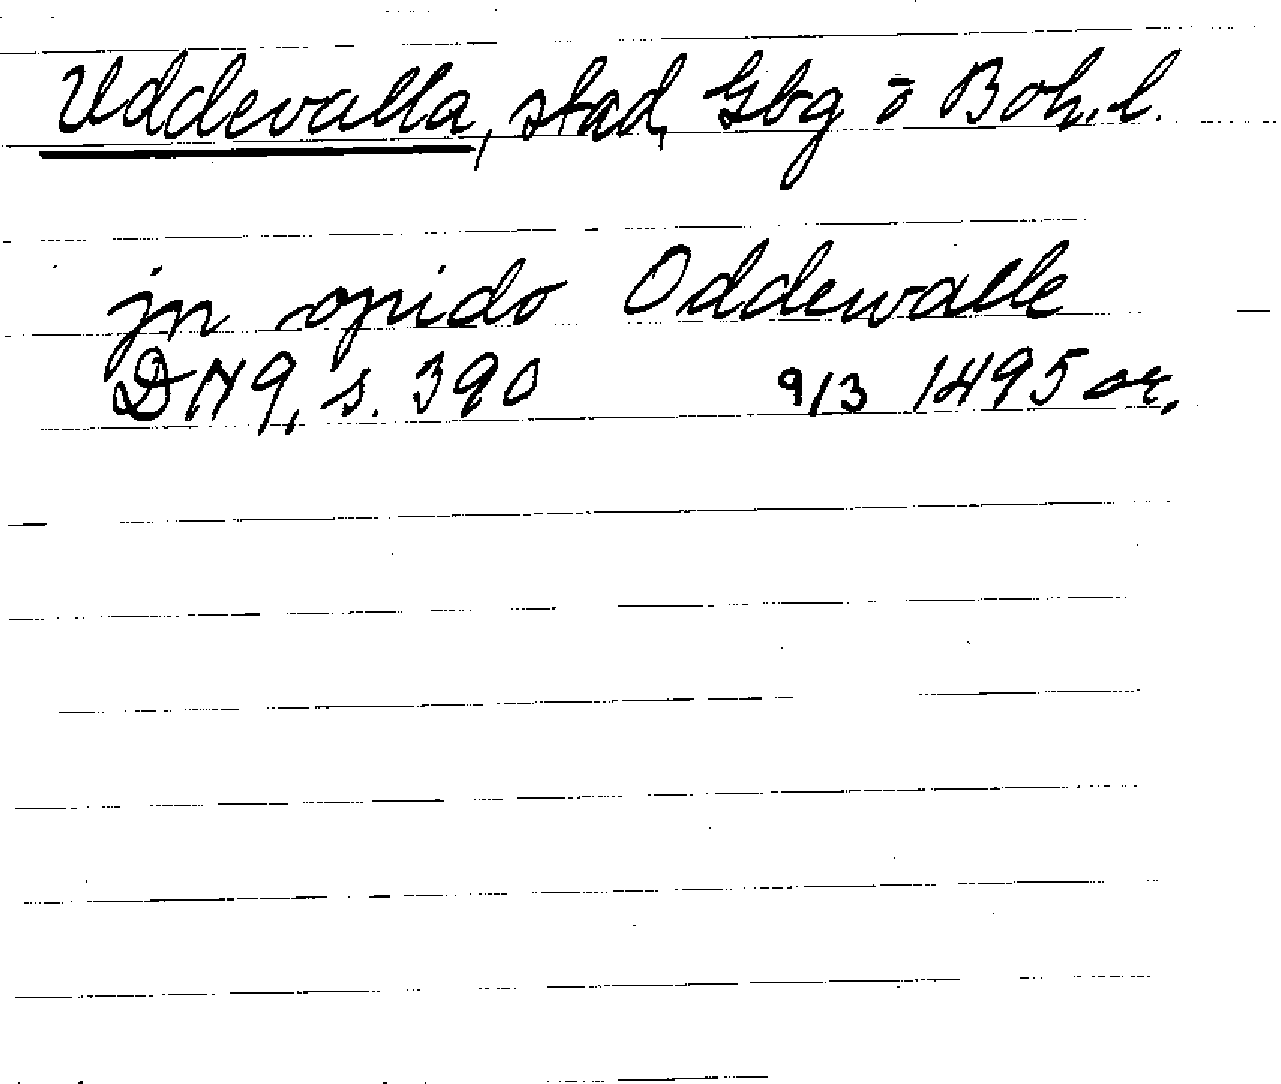 Uddevalla, stad, Gbg o Boh. l.
jn opido Oddewalle
DN 9, s. 390 9/3 1495 or.